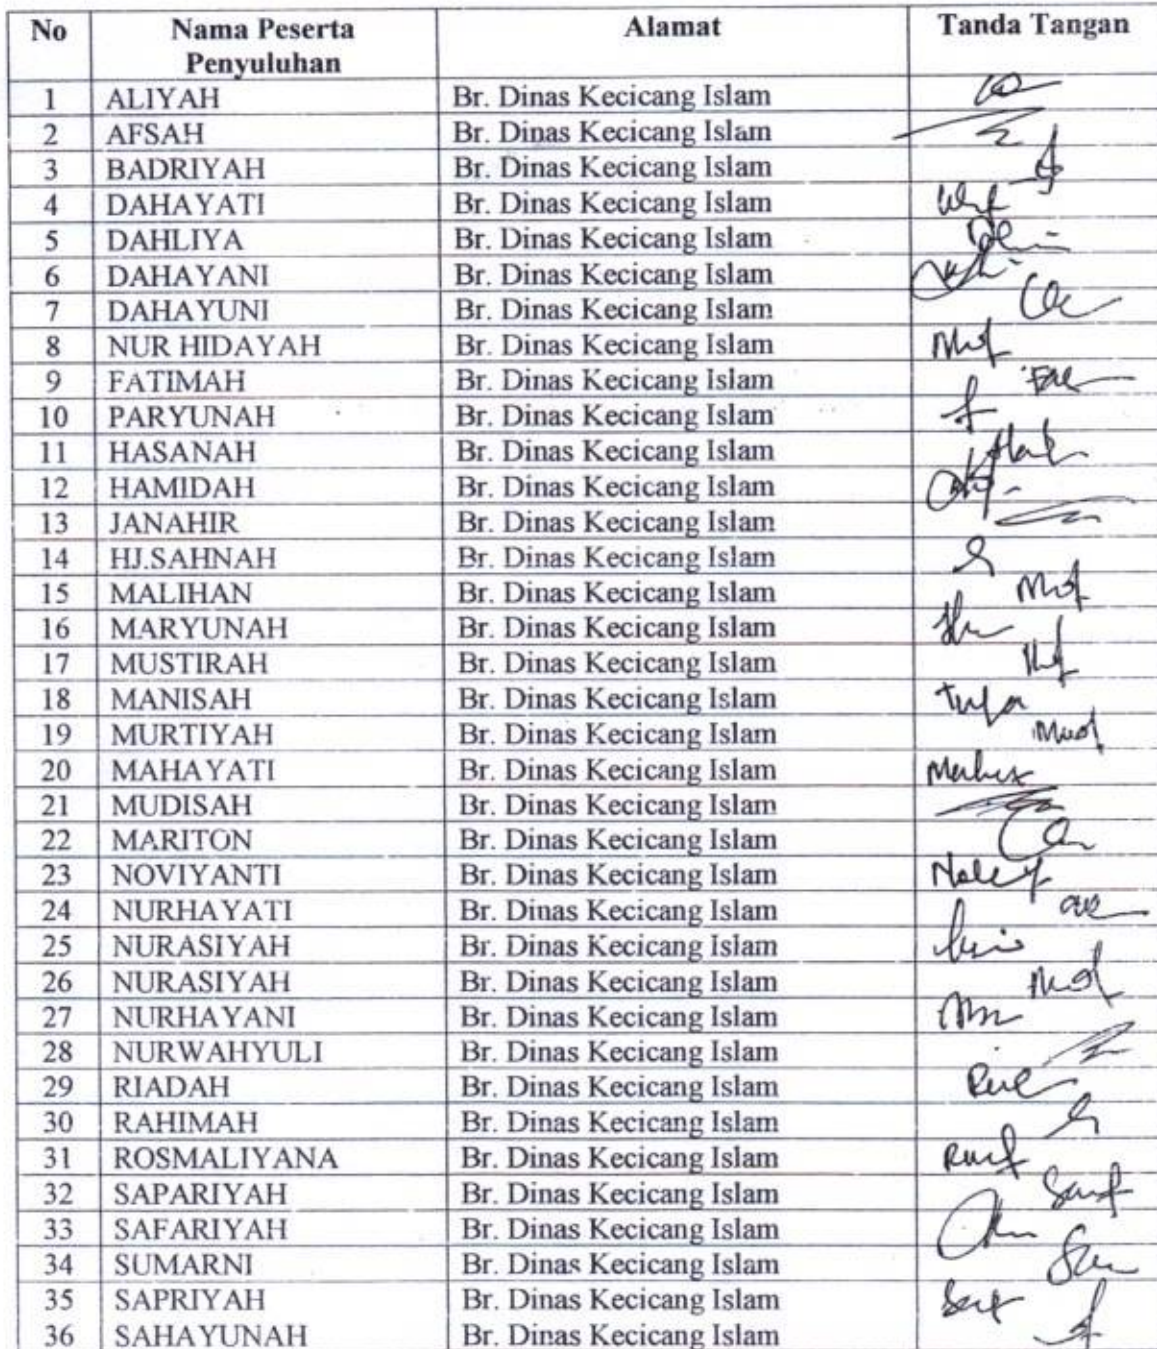 No Nama Peserta Penyuluhan Alamat Tanda Tangan
1 ALIYAH Br. Dinas Kecicang Islam
2 AFSAH Br. Dinas Kecicang Islam
3 BADRIYAH Br. Dinas Kecicang Islam
4 DAHAYATI Br. Dinas Kecicang Islam
5 DAHLIYA Br. Dinas Kecicang Islam
6 DAHAYANI Br. Dinas Kecicang Islam
7 DAHAYUNI Br. Dinas Kecicang Islam
8 NUR HIDAYAH Br. Dinas Kecicang Islam
9 FATIMAH Br. Dinas Kecicang Islam
10 PARYUNAH Br. Dinas Kecicang Islam
11 HASANAH Br. Dinas Kecicang Islam
12 HAMIDAH Br. Dinas Kecicang Islam
13 JANAHIR Br. Dinas Kecicang Islam
14 HJ.SAHNAH Br. Dinas Kecicang Islam
15 MALIHAN Br. Dinas Kecicang Islam
16 MARYUNAH Br. Dinas Kecicang Islam
17 MUSTIRAH Br. Dinas Kecicang Islam
18 MANISAH Br. Dinas Kecicang Islam
19 MURTIYAH Br. Dinas Kecicang Islam
20 MAHAYATI Br. Dinas Kecicang Islam
21 MUDISAH Br. Dinas Kecicang Islam
22 MARITON Br. Dinas Kecicang Islam
23 NOVIYANTI Br. Dinas Kecicang Islam
24 NURHAYATI Br. Dinas Kecicang Islam
25 NURASIYAH Br. Dinas Kecicang Islam
26 NURASIYAH Br. Dinas Kecicang Islam
27 NURHAYANI Br. Dinas Kecicang Islam
28 NURWAHYULI Br. Dinas Kecicang Islam
29 RIADAH Br. Dinas Kecicang Islam
30 RAHIMAH Br. Dinas Kecicang Islam
31 ROSMALIYANA Br. Dinas Kecicang Islam
32 SAPARIYAH Br. Dinas Kecicang Islam
33 SAFARIYAH Br. Dinas Kecicang Islam
34 SUMARNI Br. Dinas Kecicang Islam
35 SAPRIYAH Br. Dinas Kecicang Islam
36 SAHAYUNAH Br. Dinas Kecicang Islam